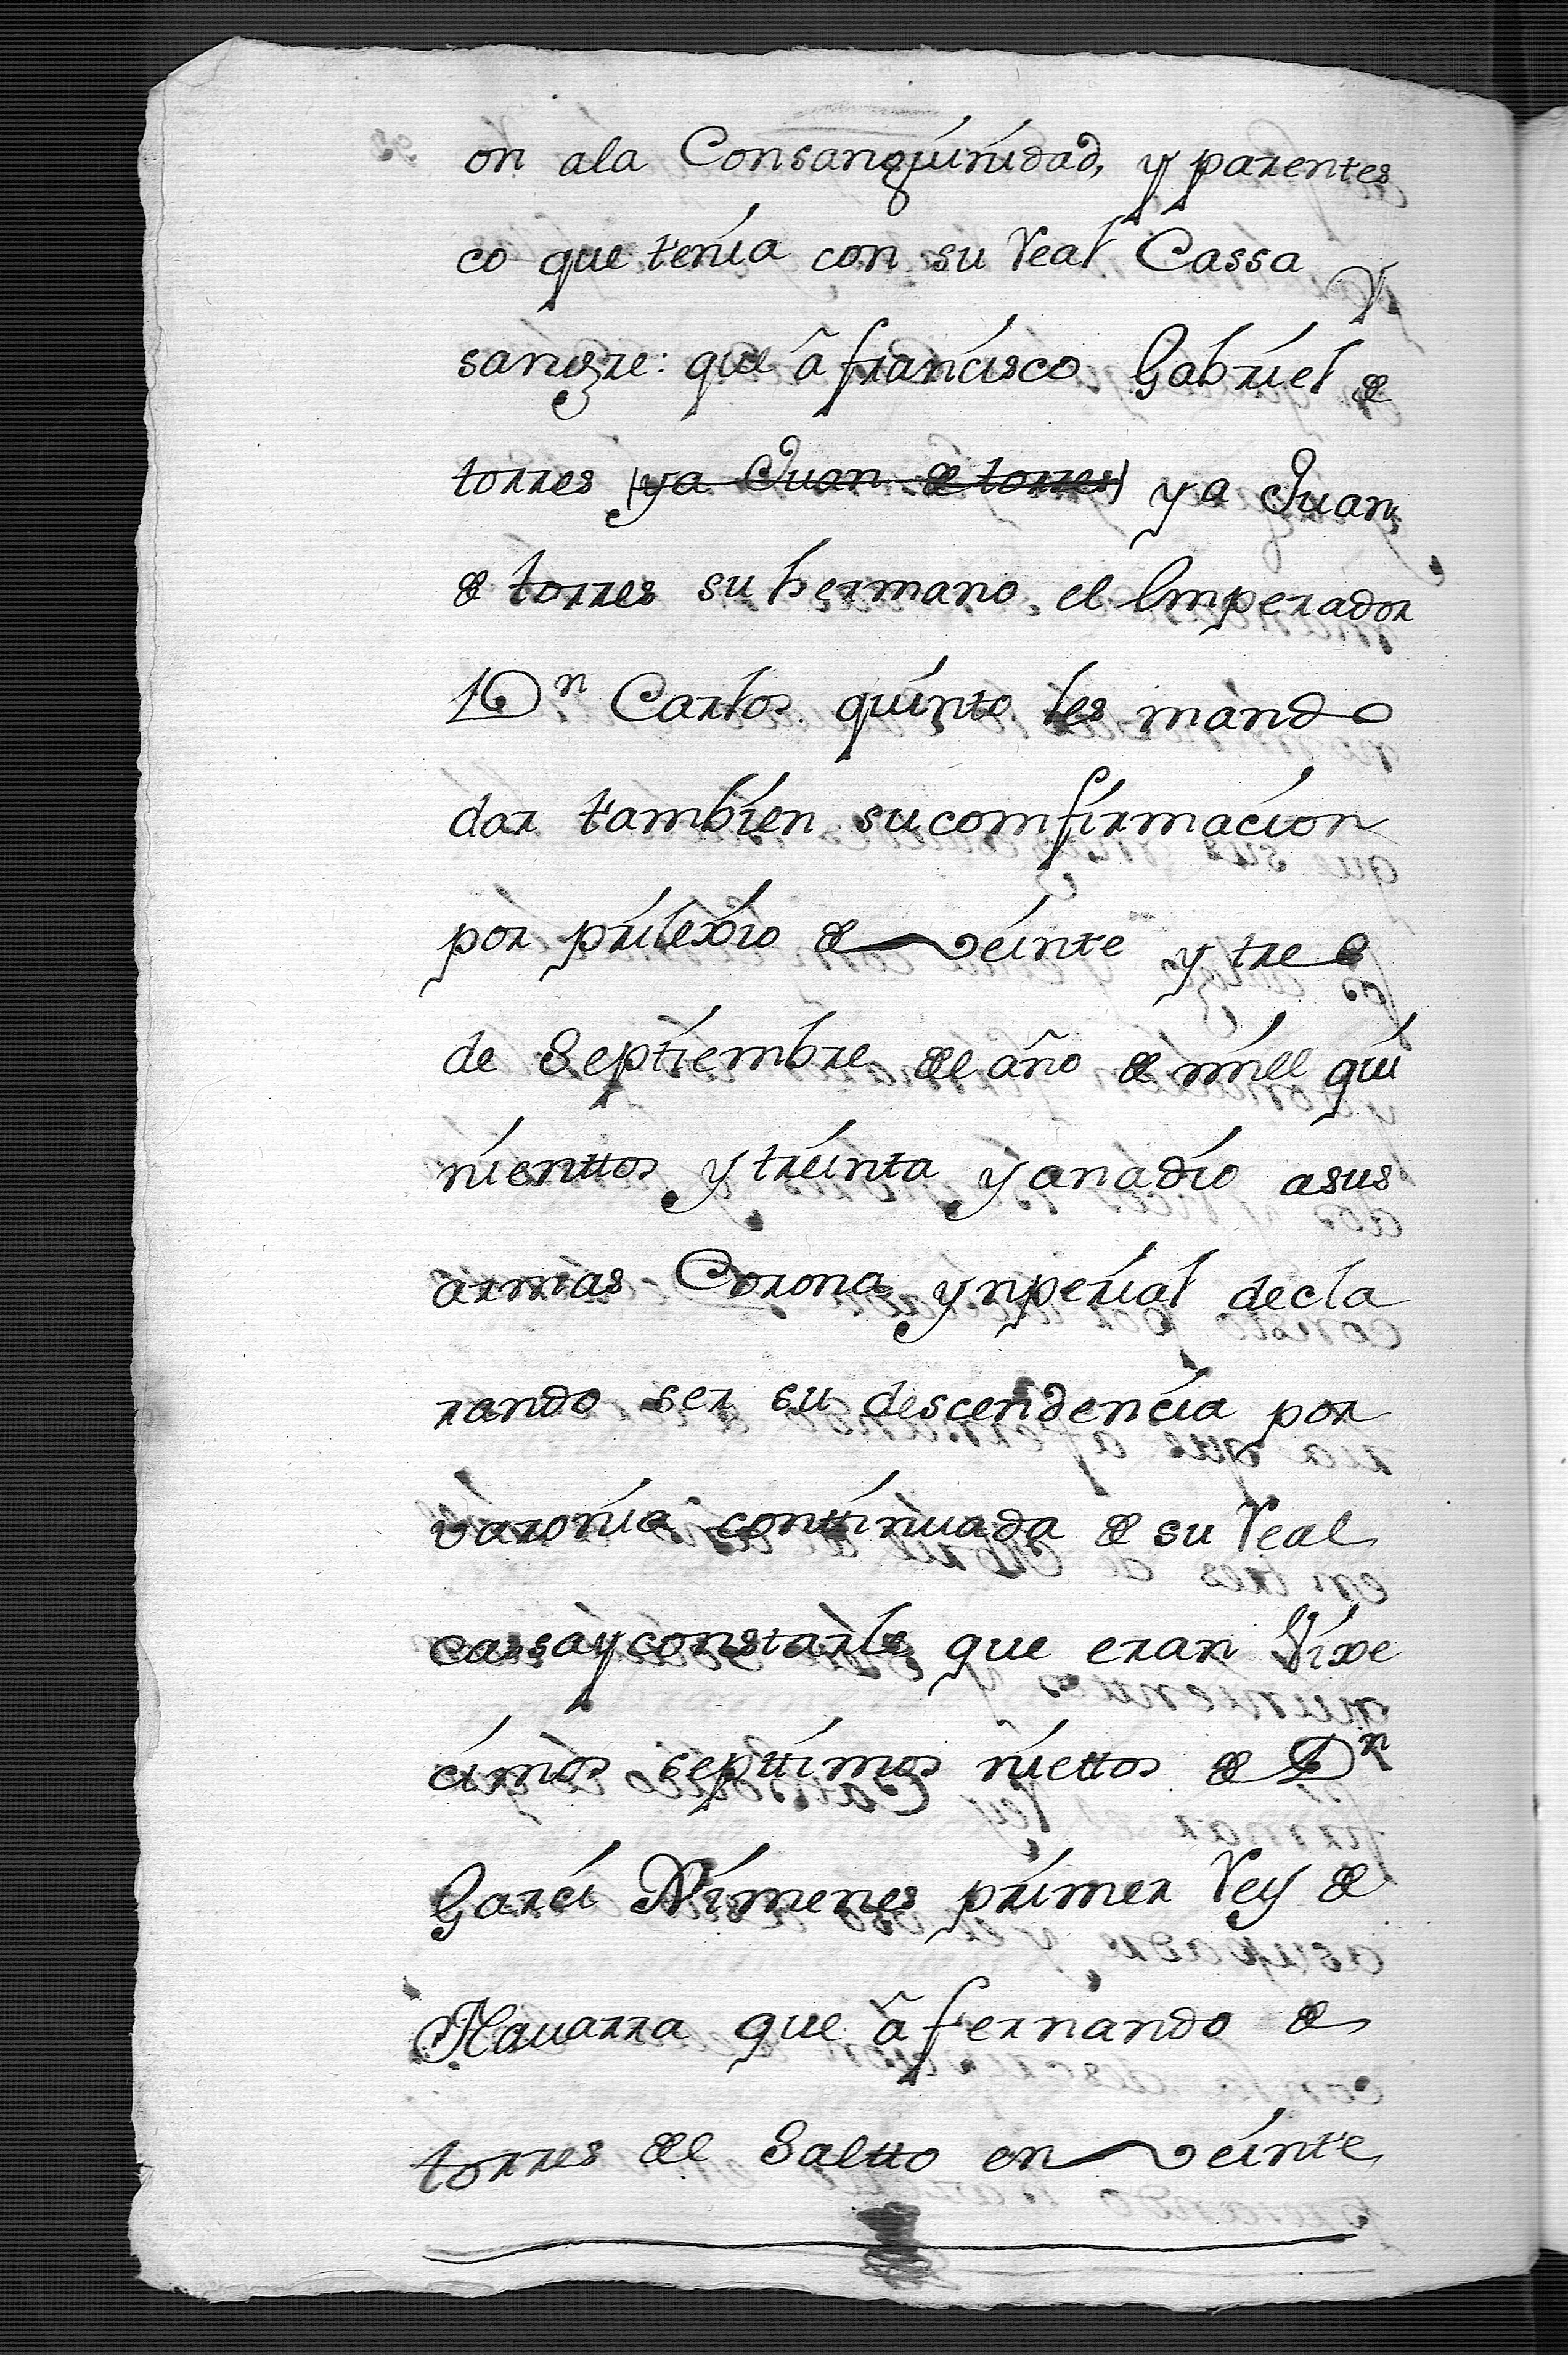 on ala Consanguinidad, y parentes
co que tenia con su Real Cassa y
sangre: que â francisco Gabriel de
torres (ya Juan de torres) ya Juan
de torres su hermano. el Emperador
Dn Carlos quinto les mando
dar tambien su comfirmacion
por prilexio de veinte y tres
de Septiembre del año de mill qui
nienttos y treinta y anadio asus
armas Corona ynperial decla
rando ser su descendencia por
varonia conttinuada de su Real
cassa y constarle que eran Vixe
cimos septtimos niettos de Dn
Garci Ximenes primer Rey de
Navarra que â fernando de
torres del Saltto en veinte